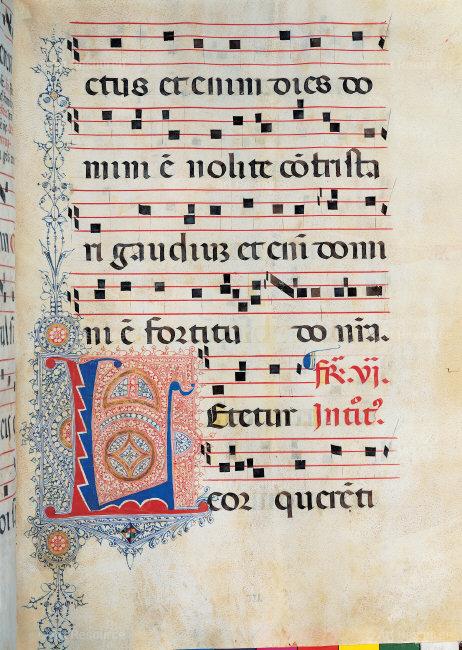 ctus et enim dies do
mini ē nolite cōtrista
ri gaudiuꝫ et eni̅ domi
ni ē fortitu do nr̄a.
fr̄. vj.
LEtetur Introit᷒.
cor querēti
Resource